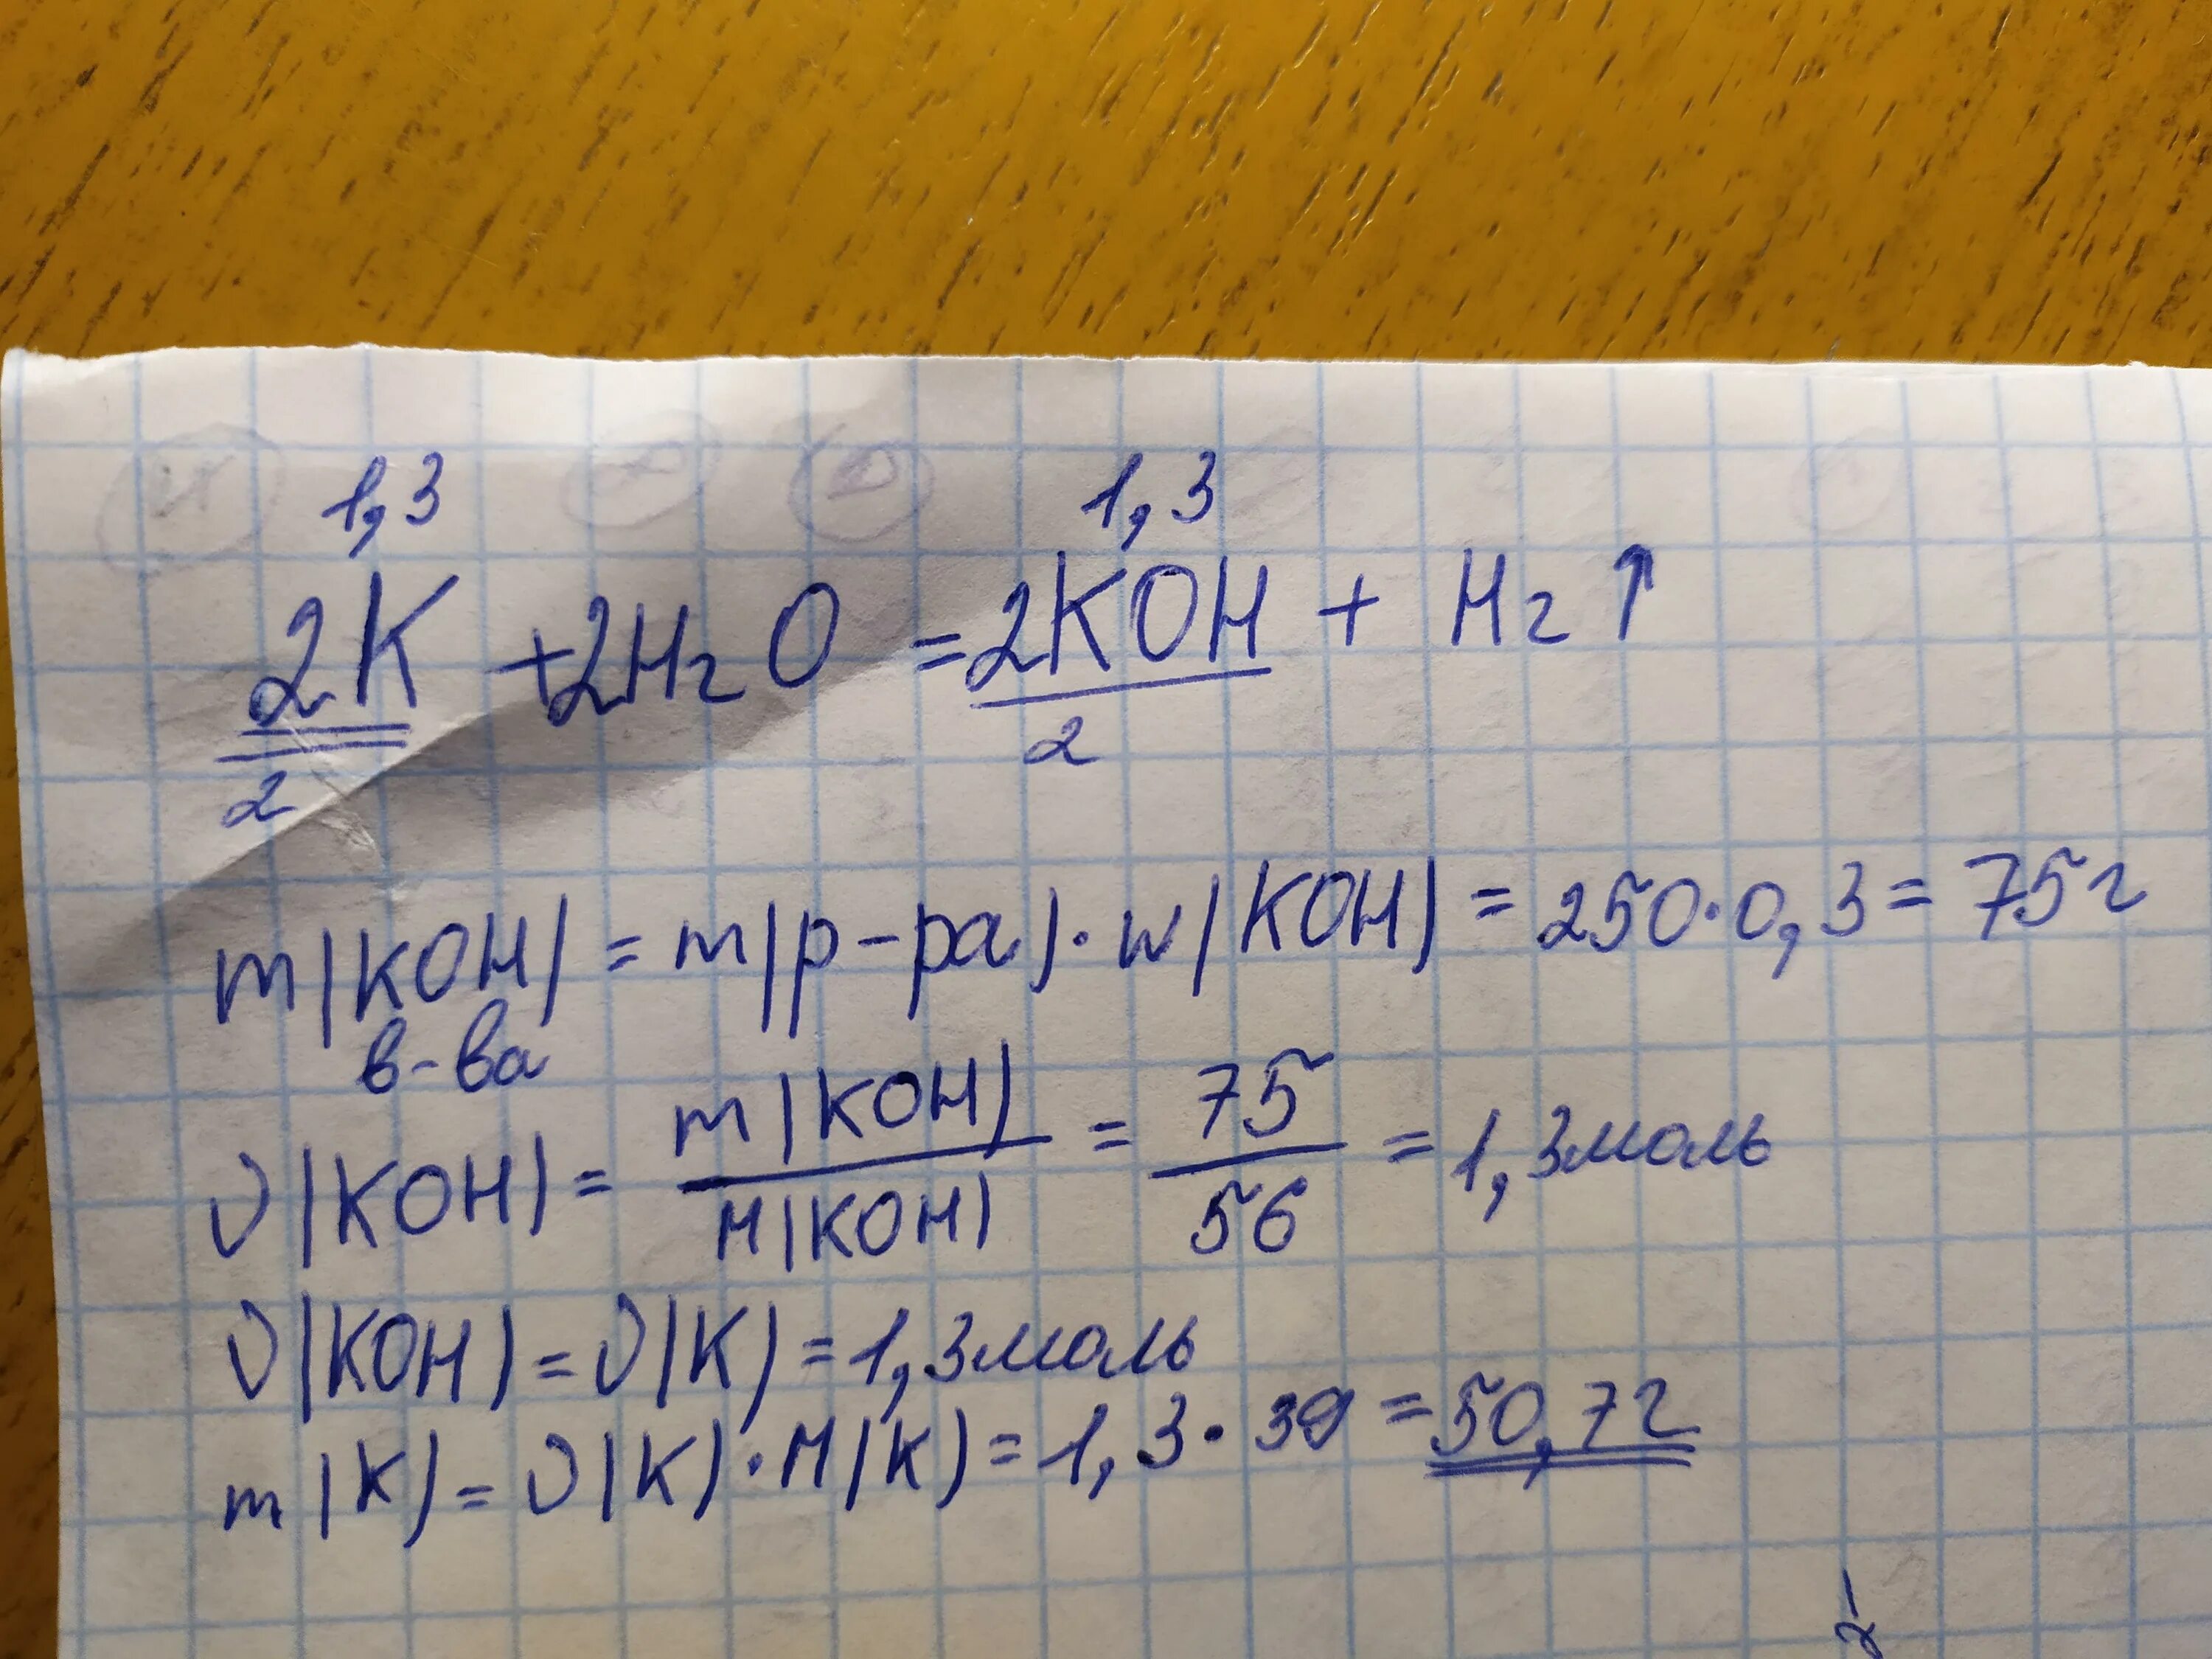 1,3 1,3
2K + 2H2O = 2KOH + H2↑
2 2
m(KOH) = m(р-ра)·w(KOH) = 250·0,3 = 75г
в-ва
ν(KOH) = m(KOH)/M(KOH) = 75/56 = 1,3моль
ν(KOH) = ν(K) = 1,3моль
m(K) = ν(K)·M(K) = 1,3·39 = 50,7г